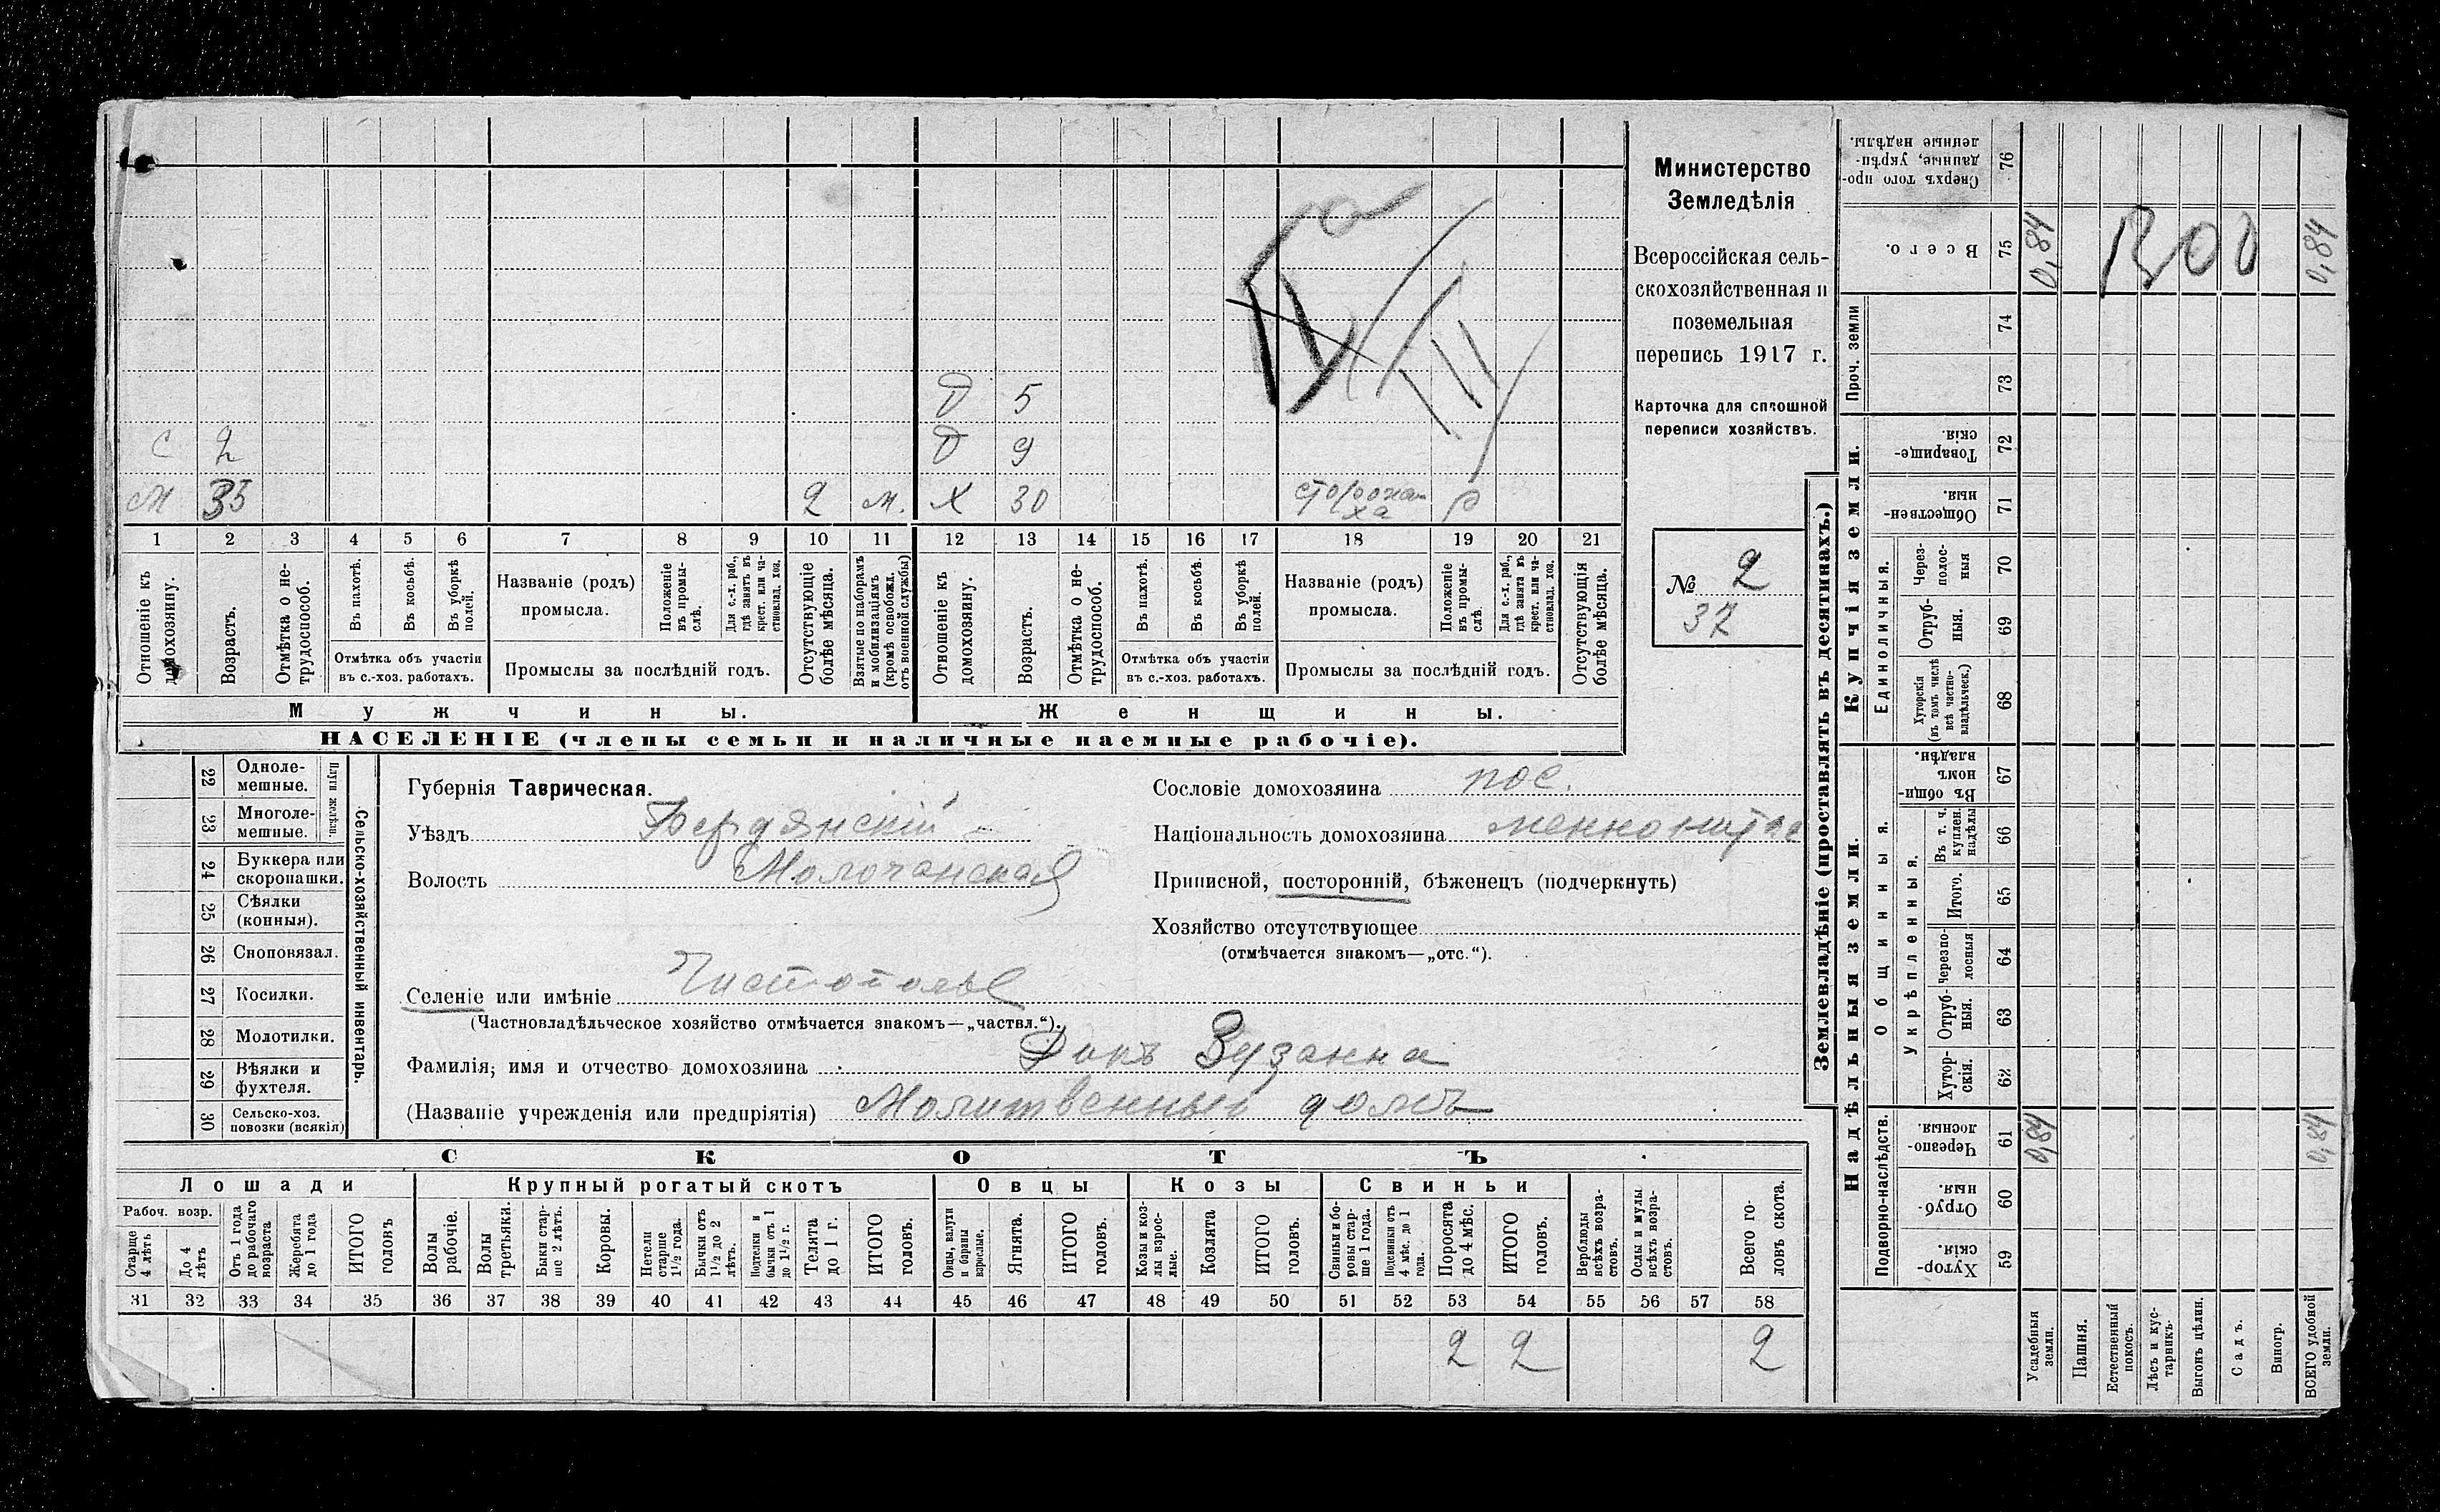 Министерство
Земледѣлія
Всероссійская сель-
скохозяйственная и
поземельная
перепись 1917 г.
Карточка для сплошной
переписи хозяйствъ.
№ 2
37
Д 5
С 2 Д 9
М 35 2 м. Х 30 сторожи-
ха р
1 2 3 4 5 6 7 8 9 10 11 12 13 14 15 16 17 18 19 20 21
Отношеніе къ домохозяину.
Возрастъ.
Отмѣтка о не-трудоспособ.
Въ пахотѣ.
Въ косьбѣ.
Въ уборкѣ полей.
Отмѣтка объ участіи
въ с.-хоз. работахъ.
Названіе (родъ)
промысла.
Положеніе въ промы-слѣ.
Для с.-х. раб., гдѣ занятъ въ крест. или ча-стновлад. хоз.
Промыслы за послѣдній годъ.
Отсутствующіе болѣе мѣсяца.
Взятые по наборамъ и мобилизаціямъ (кромѣ освобожд. отъ военной службы)
Отношеніе къ домохозяину.
Возрастъ.
Отмѣтка о не-трудоспособ.
Въ пахотѣ.
Въ косьбѣ.
Въ уборкѣ полей.
Отмѣтка объ участіи
въ с.-хоз. работахъ.
Названіе (родъ)
промысла.
Положеніе въ промы-слѣ.
Для с.-х. раб., гдѣ занята въ крест. или ча-стновлад. хоз.
Промыслы за послѣдній годъ.
Отсутствующія болѣе мѣсяца.
Мужчины. Женщины.
НАСЕЛЕНІЕ (члены семьи и наличные наемные рабочіе).
22 Одноле-мешные.
23 Многоле-мешные.
Плуги желѣзн.
24 Буккера или скоропашки.
25 Сѣялки (конныя).
26 Сноповязал.
27 Косилки.
28 Молотилки.
29 Вѣялки и фухтеля.
30 Сельско-хоз. повозки (всякія)
Сельско-хозяйственный инвентарь.
Губернія Таврическая.
Уѣздъ Бердянскій
Волость Молочанская
Селеніе или имѣніе Чистополье
(Частновладѣльческое хозяйство отмѣчается знакомъ—„частвл.“).
Фамилія, имя и отчество домохозяина Дикъ Зузанна
(Названіе учрежденія или предпріятія) Молитвенный домъ
Сословіе домохозяина пос.
Національность домохозяина
Приписной, посторонній, бѣженецъ (подчеркнуть)
Хозяйство отсутствующее
(отмѣчается знакомъ—„отс.“).
СКОТЪ.
Лошади Крупный рогатый скотъ Овцы Козы Свиньи
Рабоч. возр.
Старше 4 лѣтъ
До 4 лѣтъ
Отъ 1 года до рабочаго возраста
Жеребята до 1 года
ИТОГО головъ
Волы рабочіе.
Волы третьяки.
Быки стар-ше 2 лѣтъ.
Коровы.
Нетели старше 1½ года.
Бычки отъ 1½ до 2 лѣтъ.
Подтелки и бычки отъ 1 до 1½ г.
Телята до 1 г.
ИТОГО головъ.
Овцы, валухи и бараны взрослые.
Ягнята.
ИТОГО головъ.
Козы и коз-лы взрос-лые.
Козлята
ИТОГО головъ.
Свиньи и бо-ровы стар-ше 1 года.
Подсвинки отъ 4 мѣс. до 1 года.
Поросята до 4 мѣс.
ИТОГО головъ.
Верблюды всѣхъ возра-стовъ.
Ослы и мулы всѣхъ возра-стовъ.
Всего го-ловъ скота.
31 32 33 34 35 36 37 38 39 40 41 42 43 44 45 46 47 48 49 50 51 52 53 54 55 56 57 58
2 2 2
Землевладѣніе (проставлять въ десятинахъ.)
Надѣльныя земли. Купчія земли. Проч. земли
Подворно-наслѣдств.
Общинныя.
Укрѣпленныя.
Единоличныя.
Сверхъ того про-данные, укрѣп-ленные надѣлы. 76
Всего. 75 0,84 0,84
74
73
Товарище-скія 72
Обществен-ныя. 71
Через-полос-ныя 70
Отруб-ныя. 69
Хуторскія (въ томъ числѣ всѣ частно-владѣльческ.) 68
Въ общи-номъ владѣн. 67
Въ т. ч. куплен. надѣлы 66
Итого. 65
Черезпо-лосныя 64
Отруб-ныя. 63
Хутор-скія. 62
Черезпо-лосныя. 61 0,84 0,84
Отруб-ныя. 60
Хутор-скія. 59
Усадебныя земли.
Пашня.
Естественный покосъ.
Лѣсъ и кус-тарникъ.
Выгонъ цѣлин.
Садъ.
Виногр.
ВСЕГО удобной земли.